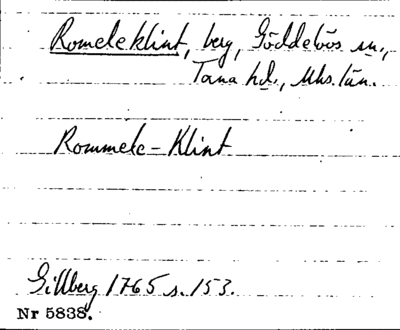 Romeleklint, berg, Göddelövs sn.,
Torna hd., Mhs. län.
Rommele-Klint
Gillberg 1765 s. 153.
Nr 5838.